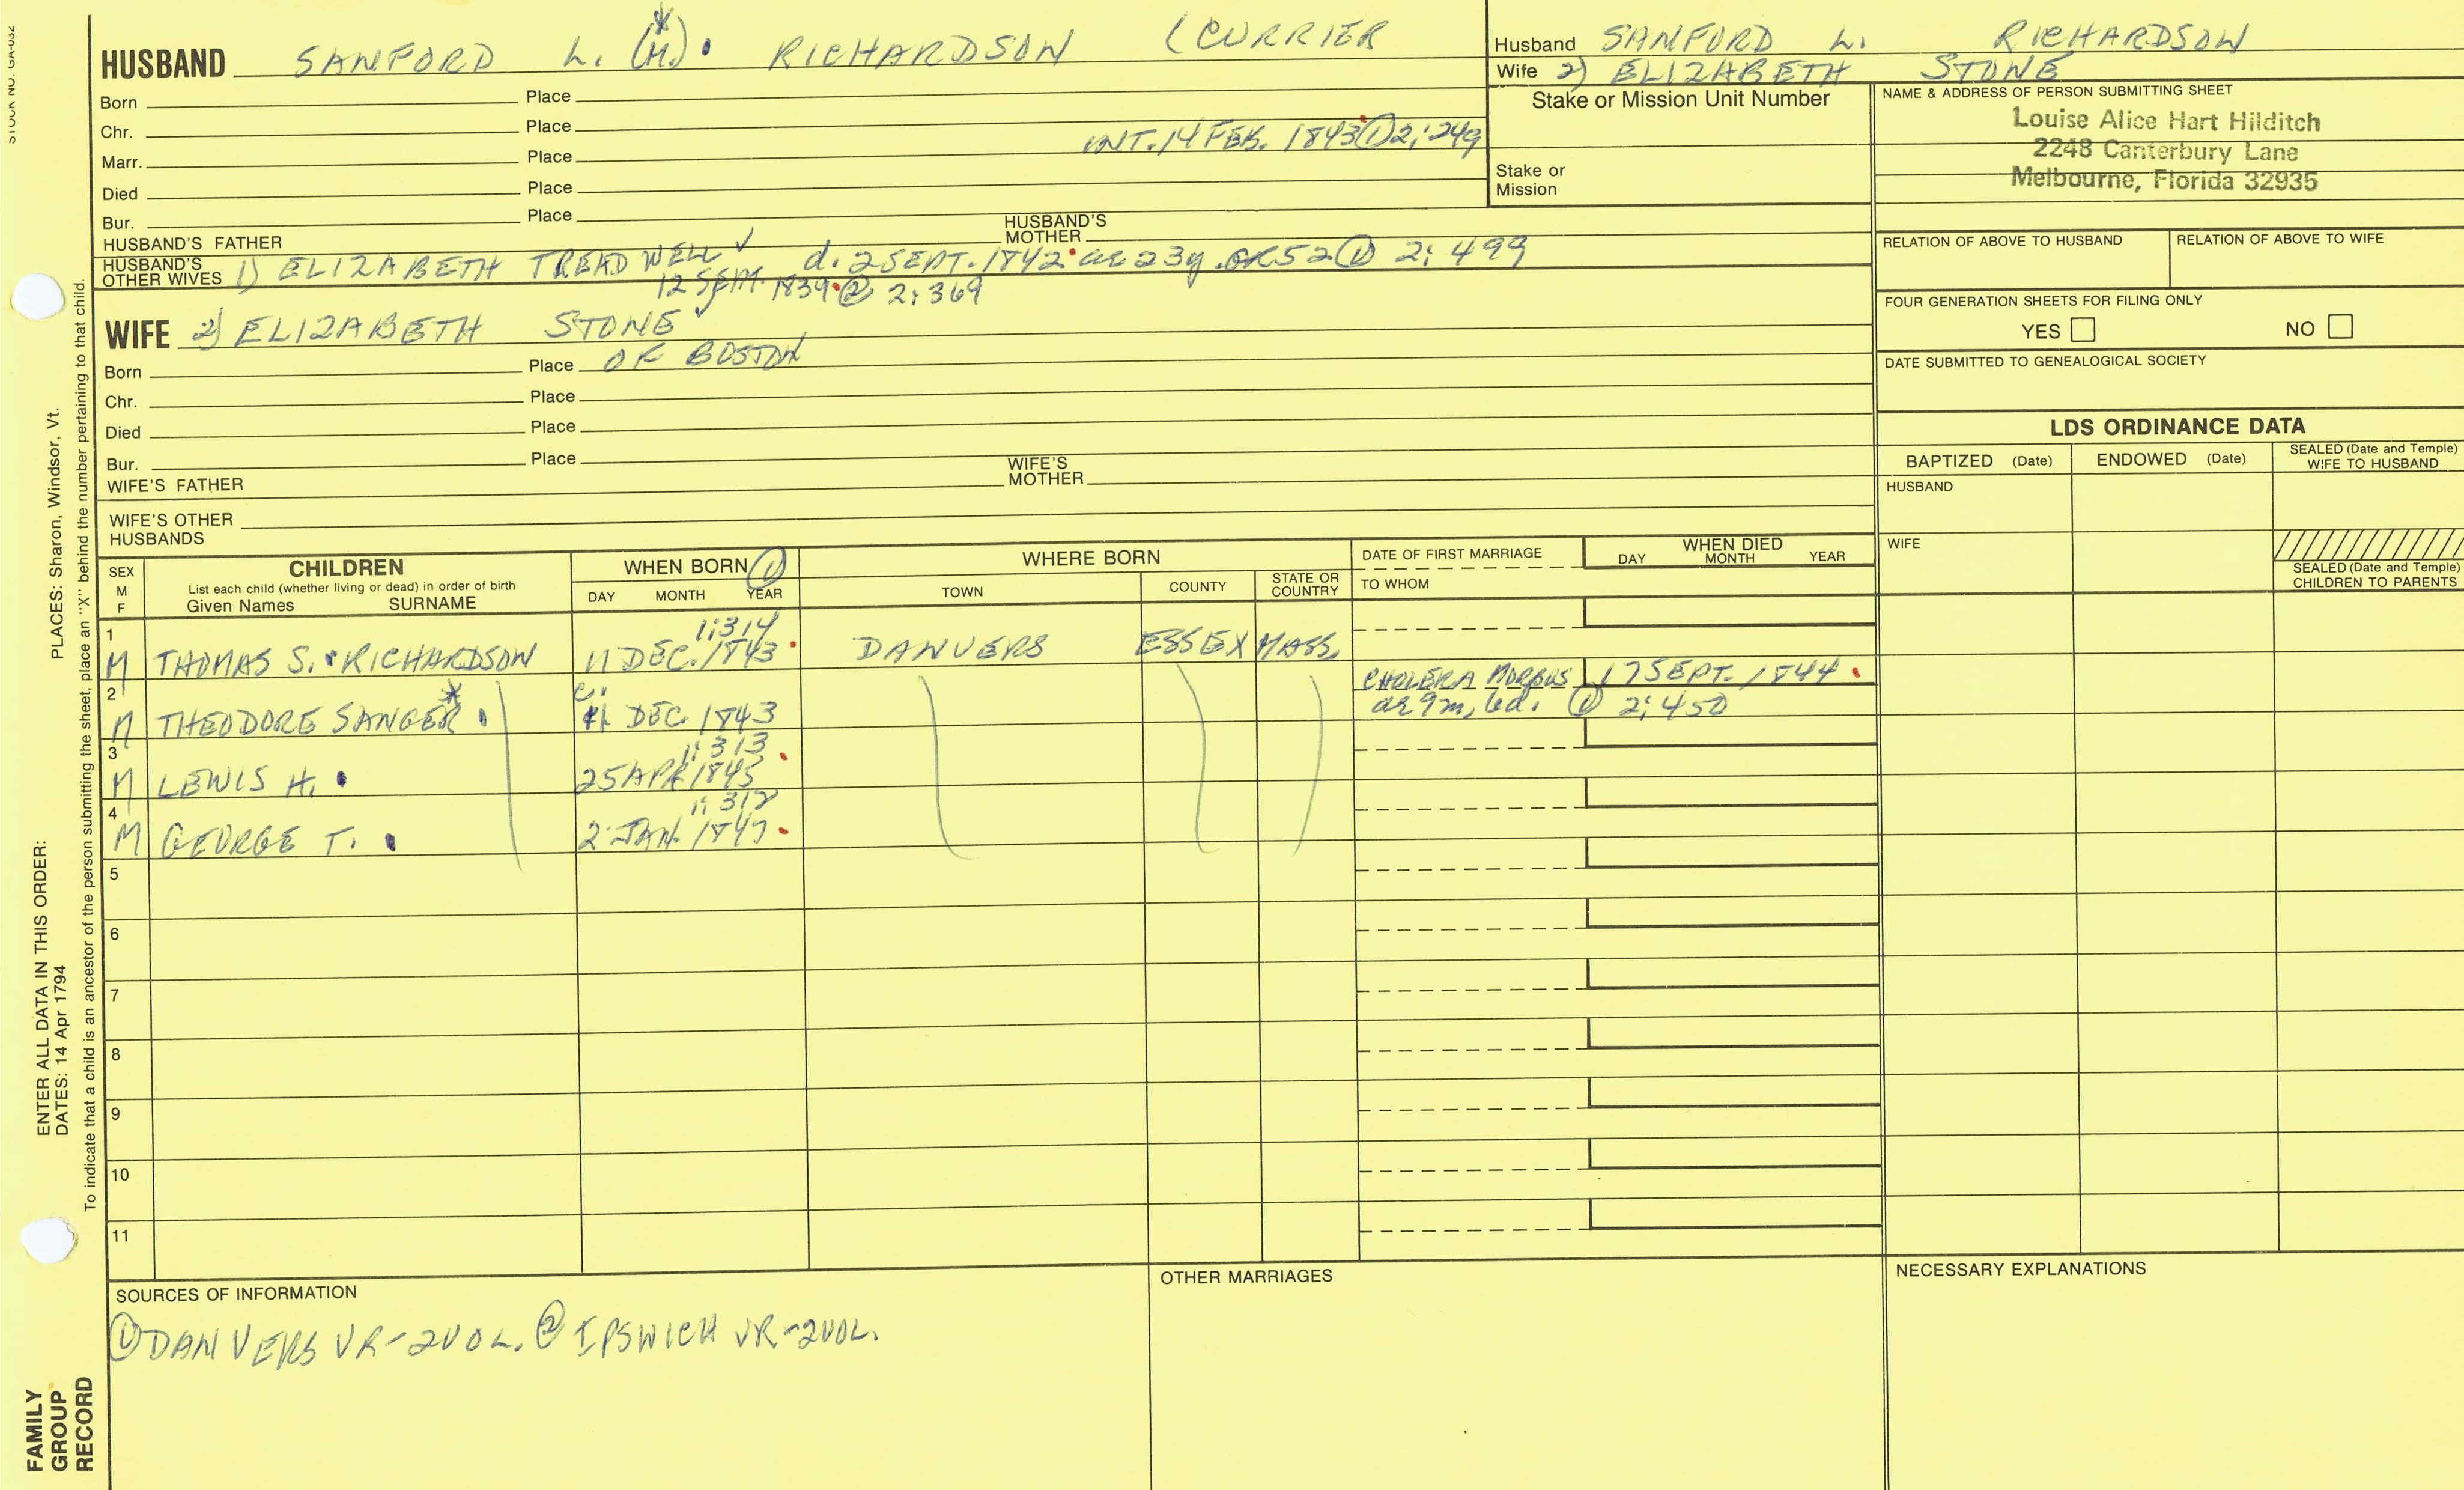 STOCK NO. GA-032
HUSBAND SANFORD L. (H.)* RICHARDSON (CURRIER
Born Place
Chr. Place
Marr. Place INT. 14 FEB. 1843 ① 2:249
Died Place
Bur. Place
HUSBAND'S FATHER HUSBAND'S MOTHER
HUSBAND'S OTHER WIVES 1) ELIZABETH TREADWELL ✓ d. 2 SEPT. 1842 ae 23y. GR52 ① 2:499
12 SEPT. 1839 ② 2:369
WIFE 2) ELIZABETH STONE
Born Place OF BOSTON
Chr. Place
Died Place
Bur. Place
WIFE'S FATHER WIFE'S MOTHER
WIFE'S OTHER HUSBANDS
Husband SANFORD L. RICHARDSON
Wife 2) ELIZABETH STONE
Stake or Mission Unit Number
Stake or Mission
NAME & ADDRESS OF PERSON SUBMITTING SHEET
Louise Alice Hart Hilditch
2248 Canterbury Lane
Melbourne, Florida 32935
RELATION OF ABOVE TO HUSBAND RELATION OF ABOVE TO WIFE
FOUR GENERATION SHEETS FOR FILING ONLY
YES NO
DATE SUBMITTED TO GENEALOGICAL SOCIETY
LDS ORDINANCE DATA
BAPTIZED (Date) ENDOWED (Date) SEALED (Date and Temple) WIFE TO HUSBAND
HUSBAND
WIFE
SEALED (Date and Temple) CHILDREN TO PARENTS
SEX M F
CHILDREN
List each child (whether living or dead) in order of birth
Given Names SURNAME
WHEN BORN ①
DAY MONTH YEAR
WHERE BORN
TOWN COUNTY STATE OR COUNTRY
DATE OF FIRST MARRIAGE
TO WHOM
WHEN DIED
DAY MONTH YEAR
1 1:314
M THOMAS S. RICHARDSON 11 DEC. 1843 DANVERS ESSEX MASS.
2 c. CHOLERA MORBUS 17 SEPT. 1844
M THEODORE SANGER * 11 DEC. 1843 ae 9m, 6d. ① 2:450
3 1:313
M LEWIS H. 25 APR 1845
4 1:312
M GEORGE T. 2 JAN. 1847
5
6
7
8
9
10
11
SOURCES OF INFORMATION
① DANVERS VR-2VOL. ② IPSWICH VR-2VOL.
OTHER MARRIAGES
NECESSARY EXPLANATIONS
PLACES: Sharon, Windsor, Vt.
ENTER ALL DATA IN THIS ORDER:
DATES: 14 Apr 1794
To indicate that a child is an ancestor of the person submitting the sheet, place an "X" behind the number pertaining to that child.
FAMILY
GROUP
RECORD